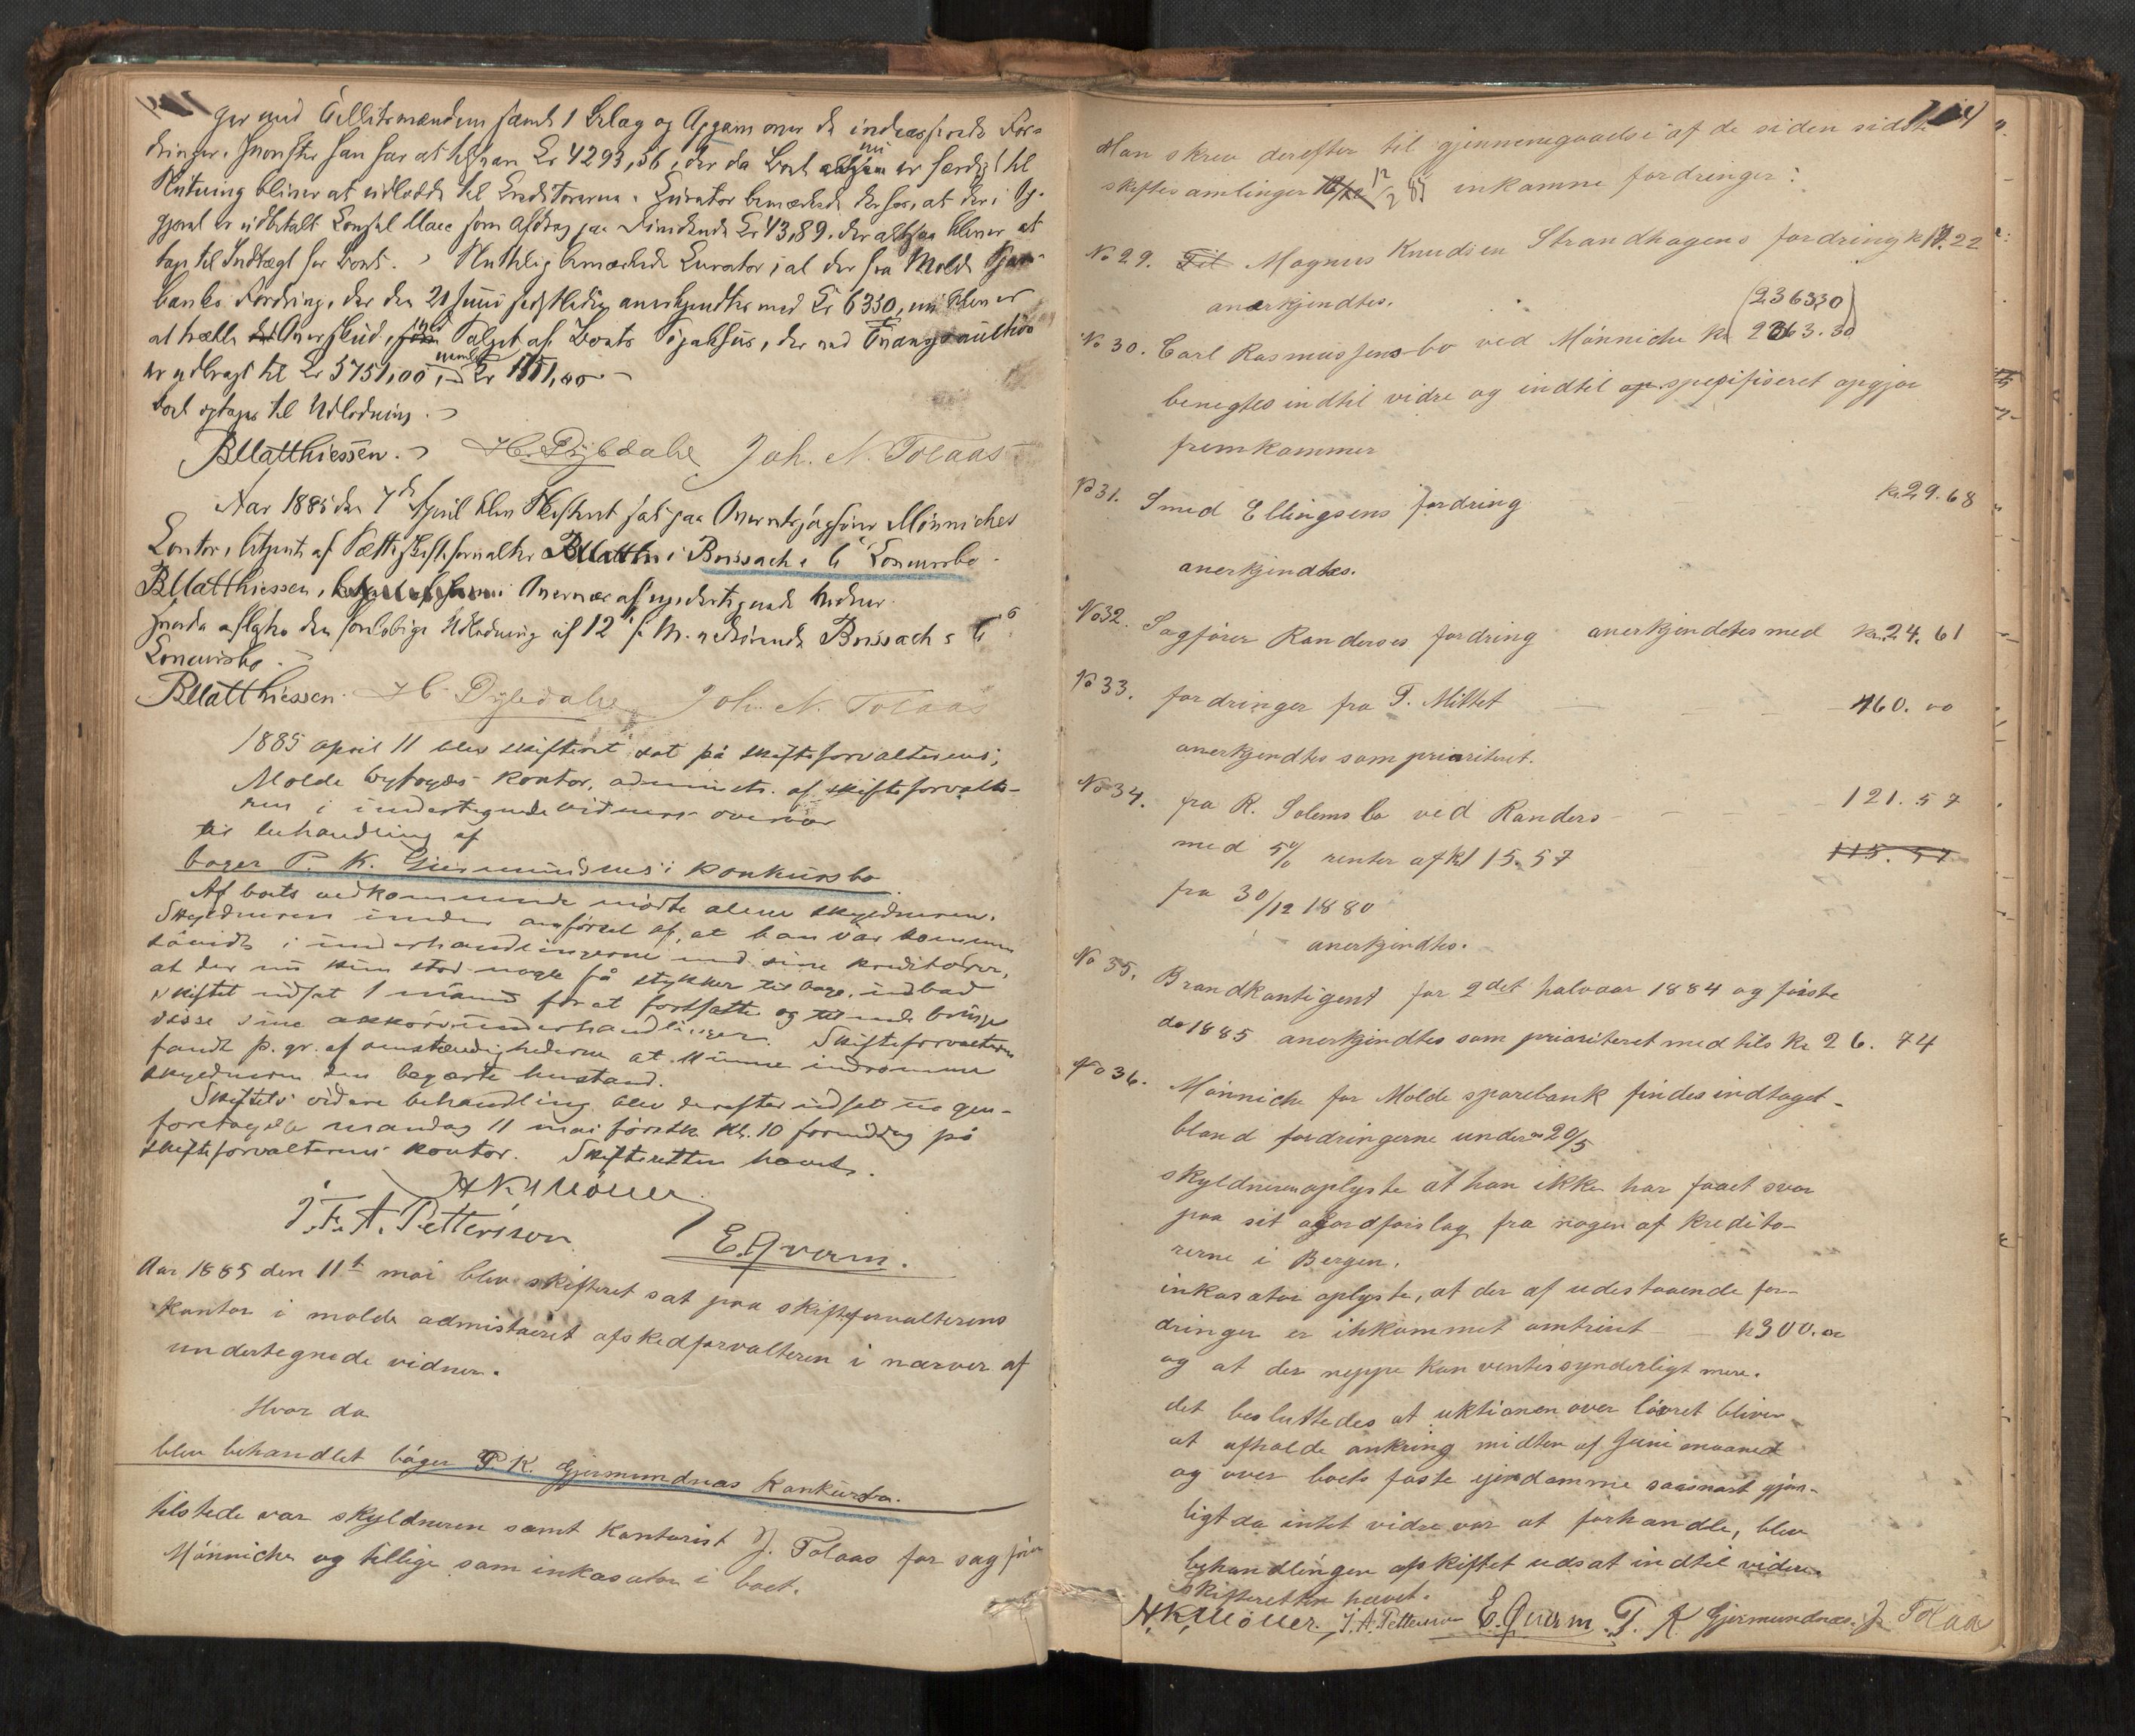 ger med Tillitsmændene samt 1 Bilag og Opgjør over de inkasserede For-
dringer, hvorefter han har at tilsvare Kr 4293,56, der da Boet nu er færdigt til
Slutning bliver at udlodde til Creditorerne. Curator bemærkede derhos, at der i Op-
gjøret er udbetalt Consul Maee som Afdrag paa Dividende Kr 43,89, der altsaa bliver at
tage til Indtægt for Boet. Sluttelig bemærkede Curator, at der fra Molde Spare-
banks Fordring, der den 21 Juni sidstleden anerkjendtes med Kr 6350, nu bliver
at trække Overskud, ved Salget af Boets Søjakhus, der ved Tvangsauktion
er udbragt til Kr 5751,00, nemlig Kr 1151,00
Boet optages til Udlodning.
BMatthiessen. H. C. Dybdahl Joh. N. Tolaas
Aar 1885 den 7de April blev Skifteret sat paa Overretssagfører Mönniches
Contor, betjent af Sætteskifteforvalter i Brissach & Co Concursbo
BMatthiessen, i Overvær af undertegnede Vidner.
Hvorda afsagdes den foreløbige Udlodning af 12 f. M. vedrørende Brissach & Co
Concursbo.
BMatthiessen H C Dybdahl Joh. N. Tolaas
1885 april 11 blev skifteret sat på skifteforvalterens,
Molde byfogds kontor, administr. af skifteforvalte-
ren i undertegnede vidners overvær
til behandling af
bager P. K. Gjermundnes's konkursbo.
Af boets vedkommende mødte alene skyldneren.
Skyldneren under anførsel af, at han var kommen
såvidt i underhandlingerne med sine kreditorer,
at der nu kun stod nogle få stykker tilbage, udbad
skiftet udsat 1 måned for at fortsætte og tilende bringe
disse sine akkordunderhandlinger. Skifteforvalteren
fandt p. gr. af omstændighederne at kunne indrømme
skyldneren den begærte henstand.
Skiftets videre behandling blev derefter udsat til gen-
foretagelse mandag 11 mai førstk. Kl. 10 formiddag på
skifteforvalterens kontor. Skifteretten hævet.
H K Møller
J. F. A. Petterson E. Qvam.
Aar 1885 den 11te mai blev skifteret sat paa skifteforvalterens
kontor i molde admistreret af skedforvalteren i nærver af
undertegnede vidner.
Hvor da
blev behandlet bager P. K. Gjermundnæs Konkursbo.
tilstede var skyldneren samt kontorist J. Tolaas for sagfører
Mönniche og tillige som inkasator i boet.
114
Man skrev derefter til gjennemgaaelse af de siden sidste
skiftesamlinger 12/2 85 inkomne fordringer:
No 29. Magnus Knudsen Strandhagens fordring kr 12.22
anerkjendtes.
(2363.30)
No 30. Carl Rasmussens bo ved Mönniche Kr 2363.30
benegtes indtil vidre og indtil spesifiseret opgjør
fremkommer
No 31. Smed Ellingsens fordring kr. 29.68
anerkjendtes.
No 32. Sagfører Randerses fordring anerkjendtes med kr. 24.61
No 33. fordringer fra T. Mittet 460.00
anerkjendtes som prioriteret.
No 34. fra R. Solems bo ved Randers 121.57
med 5% renter af kr 115.57 115.57
fra 30/12 1880
anerkjendtes.
No 35. Brandkontigent for 2det halvaar 1884 og første
do 1885 anerkjendtes som prioriteret med tils kr 26.74
No 36. Mönniche for Molde sparebank findes indtaget
bland fordringerne under 20/5
skyldneren oplyste at han ikke har faaet svar
paa sit akordforslag fra nogen af kredito-
rerne i Bergen.
inkasator oplyste, at der af udestaaende for-
dringer er inkommet omtrent kr 300.00
og at der neppe kan ventes synderligt mere.
det besluttedes at uktionen over løsøret bliver
at afholde omkring midten af Juni maaned
og over boets faste ejendomme saasnart gjør-
ligt da intet vidre var at forhandle, blev
behandlingen af skiftet udsat indtil videre.
Skifteretten hævet.
H. K. Møller. J. A. Petterson E. Qvam. P. K. Gjermundnæs. J. Tolaa